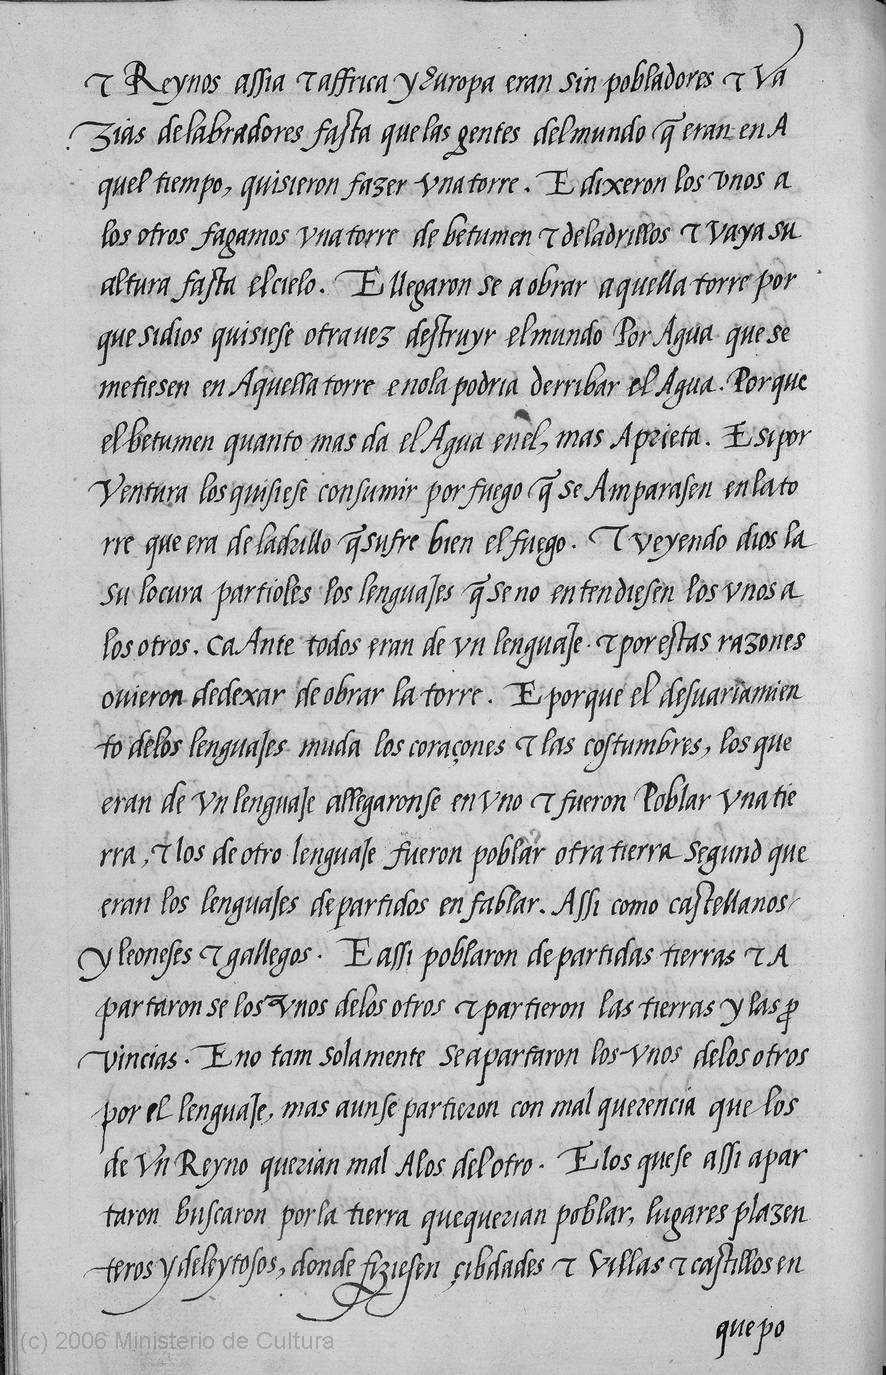 ⁊ Reynos assia ⁊ affrica y Europa eran sin pobladores ⁊ Va
zias delabradores fasta que las gentes del mundo q̃ eran en A
quel tiempo, quisieron fazer vna torre. E dixeron los vnos a
los otros fagamos vna torre de betumen ⁊ deladrillos ⁊ vaya su
altura fasta el cielo. E llegaron se a obrar aquella torre por
que si dios quisiese otra vez destruyr el mundo Por Agua que se
metiesen en Aquella torre e nola podria derribar el Agua. Porque
el betumen quanto mas da el Agua enel, mas Aprieta. E si por
Ventura los quisiese consumir por fuego q̃ se Amparasen en la to
rre que era de ladrillo q̃ sufre bien el fuego. ⁊ veyendo dios la
su locura partioles los lenguajes q̃ se no entendiesen los vnos a
los otros. Ca Ante todos eran de vn lenguaje. ⁊ por estas razones
ouieron dedexar de obrar la torre. E porque el desuariamien
to delos lenguajes muda los coraçones ⁊ las costumbres, los que
eran de vn lenguaje allegaronse en vno ⁊ fueron Poblar vna tie
rra, ⁊ los de otro lenguaje fueron poblar otra tierra segund que
eran los lenguajes departidos en fablar. Assi como castellanos
y leoneses ⁊ gallegos. E assi poblaron departidas tierras ⁊ A
partaron se los vnos delos otros ⁊ partieron las tierras y las ꝓ
vincias. E no tam solamente se apartaron los vnos delos otros
por el lenguaje, mas aunse partieron con mal querencia que los
de Vn Reyno querian mal Alos del otro. E los quese assi apar
taron buscaron por la tierra que querian poblar, lugares plazen
teros y deleytosos, donde fiziesen çibdades ⁊ villas ⁊ castillos en
que po
(c) 2006 Ministerio de Cultura